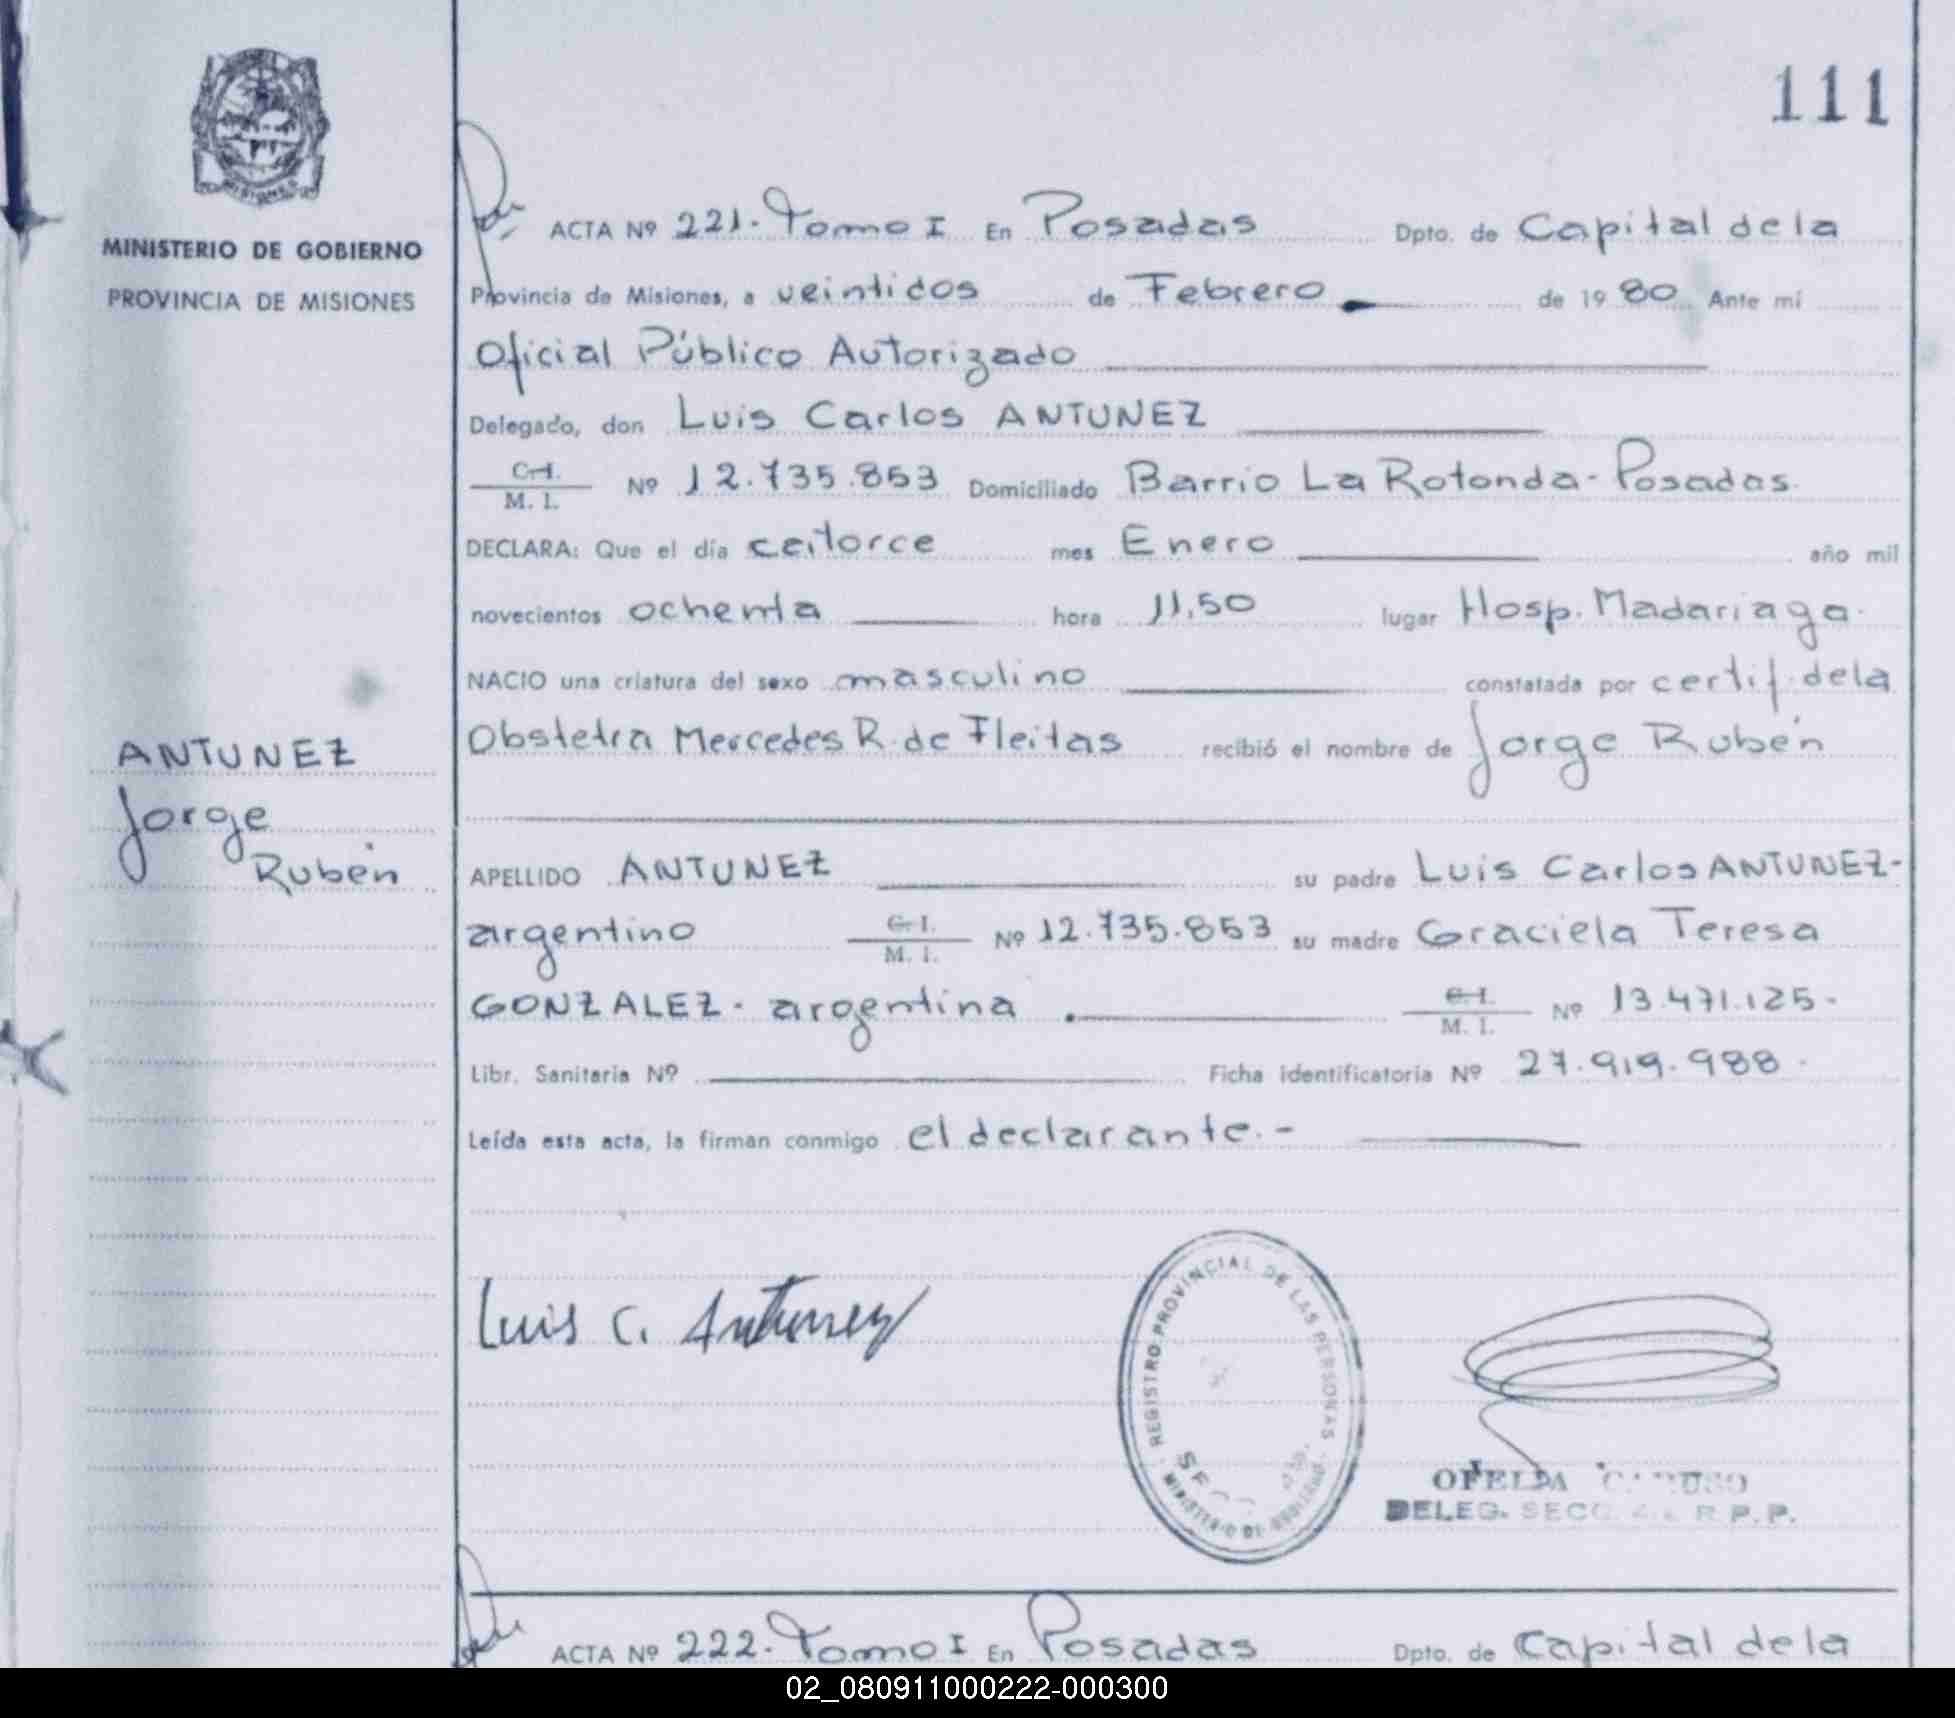 111
MISIONES
MINISTERIO DE GOBIERNO
PROVINCIA DE MISIONES
ACTA Nº 221. Tomo I En Posadas Dpto. de Capital de la
Provincia de Misiones, a veintidos de Febrero de 1980 Ante mí
Oficial Público Autorizado
Delegado, don Luis Carlos ANTUNEZ
C.I.
M. I. Nº 12.735.853 Domiciliado Barrio La Rotonda - Posadas.
DECLARA: Que el día catorce mes Enero año mil
novecientos ochenta hora 11,50 lugar Hosp. Madariaga.
NACIO una criatura del sexo masculino constatada por certif. de la
Obstetra Mercedes R. de Fleitas recibió el nombre de Jorge Rubén
ANTUNEZ
Jorge
Rubén
APELLIDO ANTUNEZ su padre Luis Carlos ANTUNEZ-
argentino C.I. M. I. Nº 12.735.853 su madre Graciela Teresa
GONZALEZ - argentina. C.I. M. I. Nº 13.471.125.
Libr. Sanitaria Nº Ficha identificatoria Nº 27.919.988.
Leída esta acta, la firman conmigo el declarante.-
Luis C. Antunez
REGISTRO PROVINCIAL DE LAS PERSONAS
MINISTERIO DE GOBIERNO
OFELIA CARUSO
DELEG. SECC. R.P.P.
ACTA Nº 222. Tomo I En Posadas Dpto. de Capital de la
02_080911000222-000300